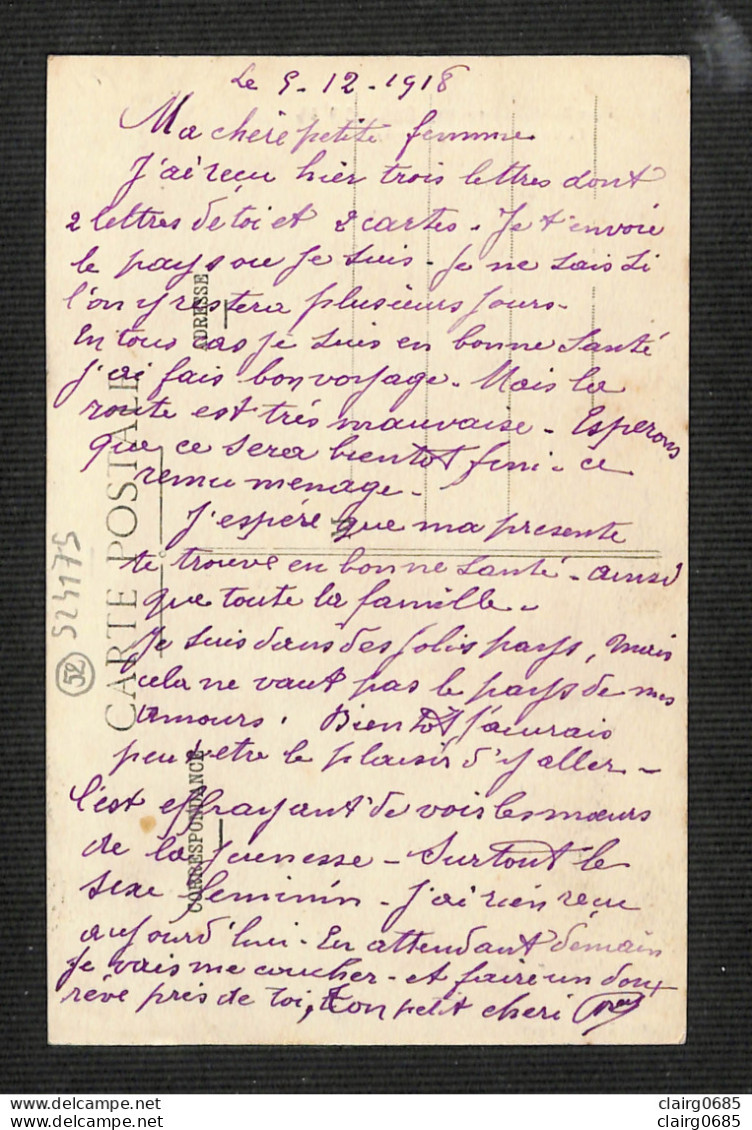 Le 5-12-1918
Ma chère petite femme
J'ai recu hier trois lettres dont
2 lettres de toi et 2 cartes. Je t'envoie
le pays ou je suis. Je ne sais si
l'on y restera plusieurs jours.
En tous cas je suis en bonne santé
j'ai fais bon voyage. Mais la
route est très mauvaise. Esperons
que ce sera bientot fini. ce
remu menage.
J'espére que ma presente
te trouve en bonne santé. ainsi
que toute la famille.
Je suis dans des jolis pays, mais
cela ne vaut pas le pays de mes
amours. Bientôt j'aurais
peut etre le plaisir d'y aller.
c'est effrayant de voir les mœurs
de la jeunesse. Surtout le
sexe feminin. J'ai rien recu
aujourd'hui. En attendant demain
Je vais me coucher. et faire un doux
rêve près de toi, ton petit cheri
CARTE POSTALE
CORRESPONDANCE
ADRESSE
M
524175
52
clairg0685
clairg0685
delcampe.net
delcampe.net